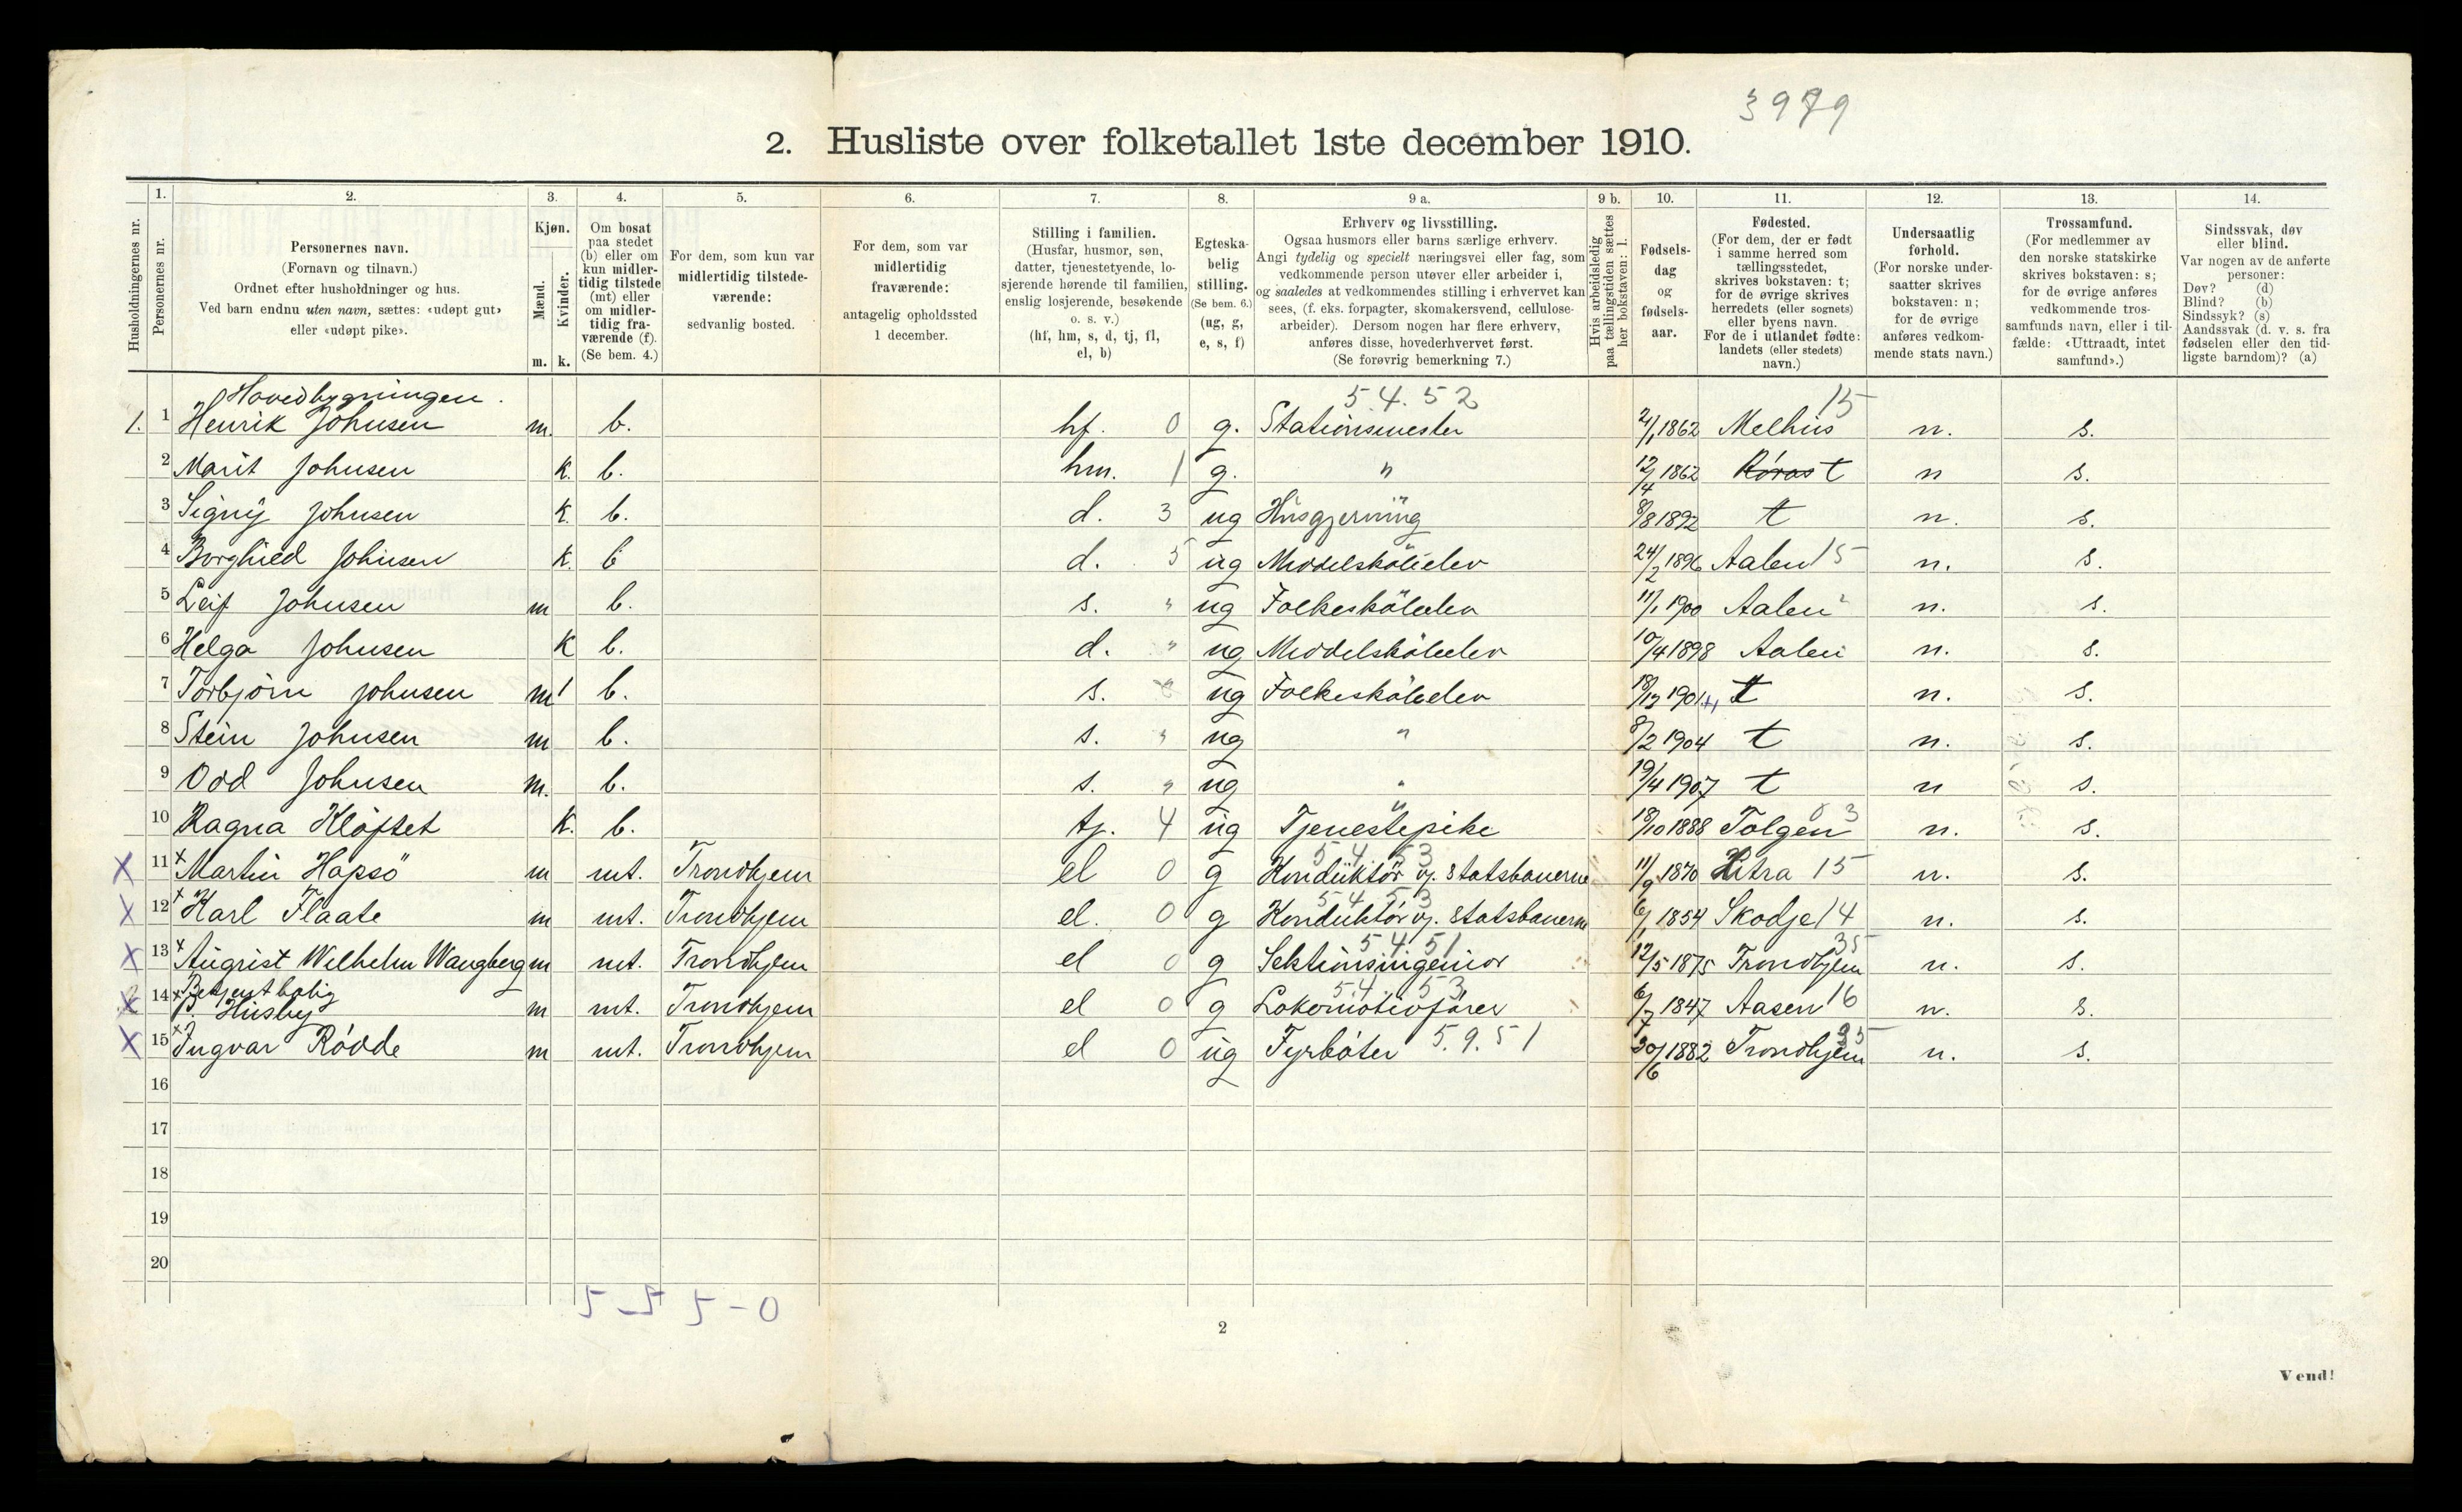 3979
2. Husliste over folketallet 1ste december 1910.
Husholdningernes nr.
1.
Personernes nr.
2.
Personernes navn.
(Fornavn og tilnavn.)
Ordnet efter husholdninger og hus.
Ved barn endnu uten navn, sættes: «udøpt gut»
eller «udøpt pike».
3.
Kjøn.
Mænd.
Kvinder.
m. k.
4.
Om bosat
paa stedet
(b) eller om
kun midler-
tidig tilstede
(mt) eller
om midler-
tidig fra-
værende (f).
(Se bem. 4.)
5.
For dem, som kun var
midlertidig tilstede-
værende:
sedvanlig bosted.
6.
For dem, som var
midlertidig
fraværende:
antagelig opholdssted
1 december.
7.
Stilling i familien.
(Husfar, husmor, søn,
datter, tjenestetyende, lo-
sjerende hørende til familien,
enslig losjerende, besøkende
o. s. v.)
(hf, hm, s, d, tj, fl,
el, b)
8.
Egteska-
belig
stilling.
(Se bem. 6.)
(ug, g,
e, s, f)
9 a.
Erhverv og livsstilling.
Ogsaa husmors eller barns særlige erhverv.
Angi tydelig og specielt næringsvei eller fag, som
vedkommende person utøver eller arbeider i,
og saaledes at vedkommendes stilling i erhvervet kan
sees, (f. eks. forpagter, skomakersvend, cellulose-
arbeider). Dersom nogen har flere erhverv,
anføres disse, hovederhvervet først.
(Se forøvrig bemerkning 7.)
9 b.
Hvis arbeidsledig
paa tællingstiden sættes
her bokstaven: l.
10.
Fødsels-
dag
og
fødsels-
aar.
11.
Fødested.
(For dem, der er født
i samme herred som
tællingsstedet,
skrives bokstaven: t;
for de øvrige skrives
herredets (eller sognets)
eller byens navn.
For de i utlandet fødte:
landets (eller stedets)
navn.)
12.
Undersaatlig
forhold.
(For norske under-
saatter skrives
bokstaven: n;
for de øvrige
anføres vedkom-
mende stats navn.)
13.
Trossamfund.
(For medlemmer av
den norske statskirke
skrives bokstaven: s;
for de øvrige anføres
vedkommende tros-
samfunds navn, eller i til-
fælde: «Uttraadt, intet
samfund».)
14.
Sindssvak, døv
eller blind.
Var nogen av de anførte
personer:
Døv? (d)
Blind? (b)
Sindssyk? (s)
Aandssvak (d. v. s. fra
fødselen eller den tid-
ligste barndom)? (a)
Hovedbygningen. 5.4.52 15
1. 1 Henrik Johnsen m. b. hf. 0 g. Stationsmester 2/1 1862 Melhus n. s.
2 Marit Johnsen k. b. hm. 1 g. " 12/4 1862 Röros t n s.
3 Signy Johnsen k. b. d. 3 ug Husgjerning 8/8 1892 t n. s.
4 Borghild Johnsen k. b d. 5 ug Middelskoleelev 24/2 1896 Aalen 15 n. s.
5 Leif Johnsen m b. s. " ug Folkeskoleelev 11/1 1900 Aalen n. s.
6 Helga Johnsen k b. d. " ug Middelskoleelev 10/4 1898 Aalen n. s.
7 Torbjörn Johnsen m b. s. ug Folkeskoleelev 18/12 1901 t n. s.
8 Stein Johnsen m b. s. " ug " 8/2 1904 t n. s.
9 Odd Johnsen m. b. s. " ug " 19/4 1907 t n s.
10 Ragna Kløftet k. b. tj. 4 ug Tjenestepike 18/10 1888 Tolgen 03 n. s.
5 4 53
X 11 x Martin Hapsö m mt. Trondhjem el 0 g Konduktör v. statsbanerne 11/9 1870 Hitra 15 n. s.
5 4 53
X 12 x Karl Flaate m mt. Trondhjem el. 0 g Konduktör v. statsbanerne 6/1 1854 Skodje 14 n. s.
5 4 51 35
X 13 x August Wilhelm Wangberg m mt. Trondhjem el 0 g Sektionsingeniør 12/5 1875 Trondhjem n. s.
Betjentbolig 5.4.53
2 X 14 x P. Husby m mt. Trondhjem el 0 g Lokomotivfører 6/7 1847 Aasen 16 n. s.
X 15 x Ingvar Rödde m mt. Trondhjem el 0 ug Fyrböter 5.9.51 30/6 1882 Trondhjem 35 n. s.
16
17
18
19
20
5-5 5-0
2
Vend!